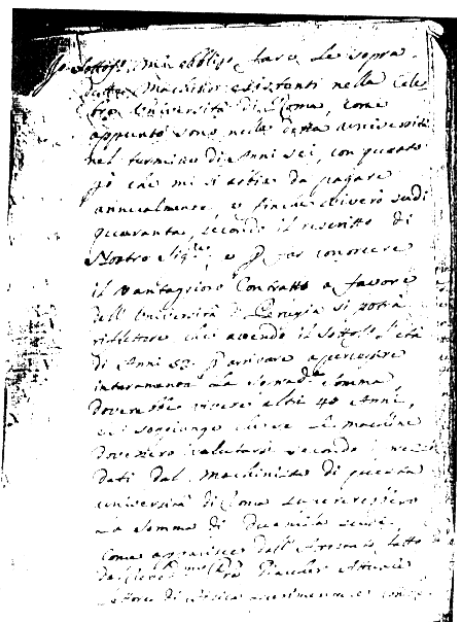 Io Sottos.º mi obbligo fare le sopra
dette Macchine esistenti nella Cele
bre Università di Roma, come
appunto sono nella detta università
nel termine di Anni sei, con questo
pò che mi si abbia da pagare
annualmente, e finche viverò scudi
quaranta, secondo il rescritto di
Nostro Sig.re, e p far conoscere
il vantaggioso Contratto a favore
dell'Università di Perugia si potrà
riflettere che avendo il Sottos.º l'età
di Anni 52. p arrivare a percepire
interamente la Somma
dovrebbe vivere altri 40 Anni,
si soggiunge che se le macchine
dovessero valutarsi secondo i
dati dal Macchinista di questa
università di Roma
la Somma di Due mila scudi,
Come apparisce dall' fatto
dal Gioachino Attuale
di Fisica